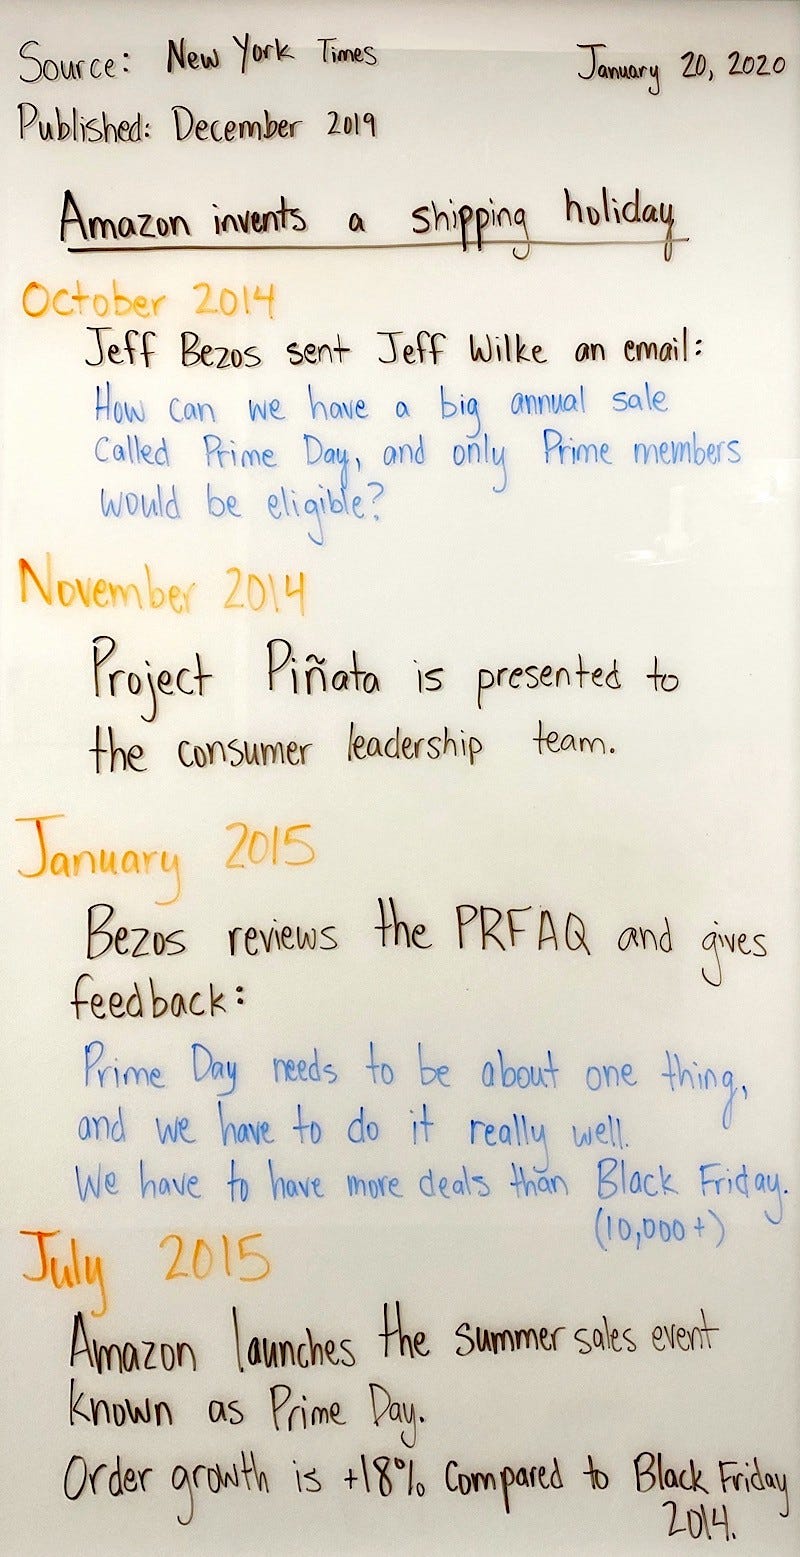 Source: New York Times
January 20, 2020
Published: December 2019
Amazon invents a shipping holiday
October 2014
Jeff Bezos sent Jeff Wilke an email:
How can we have a big annual sale
Called Prime Day, and only Prime members
would be eligible?
November 2014
Project Piñata is presented to
the consumer leadership team.
January 2015
Bezos reviews the PRFAQ and gives
feedback:
Prime Day needs to be about one thing,
and we have to do it really well.
We have to have more deals than Black Friday.
(10,000+)
July 2015
Amazon launches the summer sales event
known as Prime Day.
Order growth is +18% Compared to Black Friday
2014.